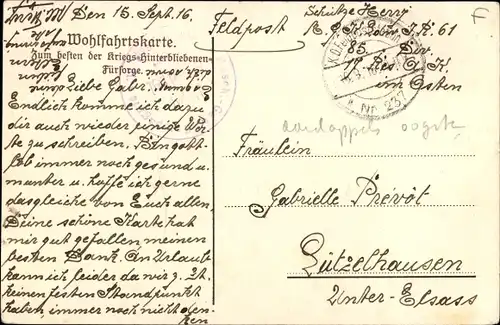 Den 15. Sept. 16.
Feldpost
Schütze Henry
K. 61
85. Div.
17 Res.
im Osten
Nr. 237
Wohlfahrtskarte.
Zum besten der Kriegs-Hinterbliebenen-
Fürsorge.
Liebe Gabr.
Endlich komme ich dazu
dir auch wieder einige Wor-
te zu schreiben. Bin gott-
lob immer noch gesund u.
munter u. hoffe ich gerne
dasgleiche von Euch allen.
Deine schöne Karte hat
mir gut gefallen, meinen
besten Dank. An Urlaub
kann ich leider da wir g. Zt.
keinen festen Standpunkt
haben, immer noch nicht den-
ken
Fräulein
Gabrielle Prévôt
Lützelhausen
Unter-Elsass